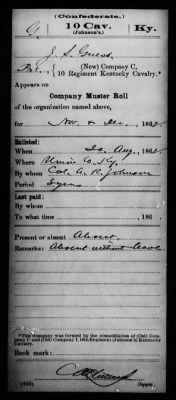 (Confederate.)
G 10 Cav. Ky.
(Johnson's.)
J. S. Guess
Pvt., (New) Company C,
10 Regiment Kentucky Cavalry.*
Appears on
Company Muster Roll
of the organization named above,
for Nov. & Dec., 1862.
Enlisted:
When Aug., 1862.
Where Union Co. Ky.
By whom Col. A. R. Johnson
Period 3 yrs
Last paid:
By whom
To what time , 186 .
Present or absent Absent
Remarks: Absent without leave
*This company was formed by the consolidation of (Old) Company C and (Old) Company I, 10th Regiment (Johnson's) Kentucky Cavalry.
Book mark:
(642)
Copyist.